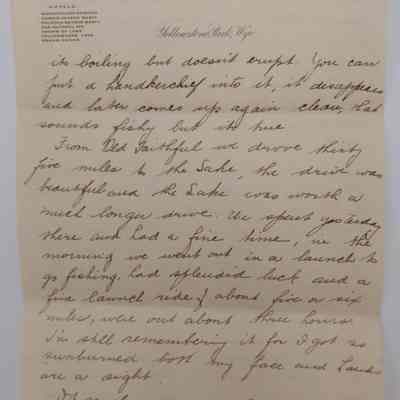 HOTELS
Yellowstone Park, Wyo.
its boiling but doesn't erupt. You can
put a handkerchief into it, it disappears
and later comes up again clean, that
sounds fishy but it's true
From Old Faithful we drove thirty
five miles to the Lake, the drive was
beautiful and the Lake was worth a
much longer drive. We spent yesterday
there and had a fine time, in the
morning we went out in a launch to
go fishing, had splendid luck and a
fine launch ride of about five or six
miles, were out about three hours.
I'm still remembering it for I got so
sunburned both my face and hands
are a sight